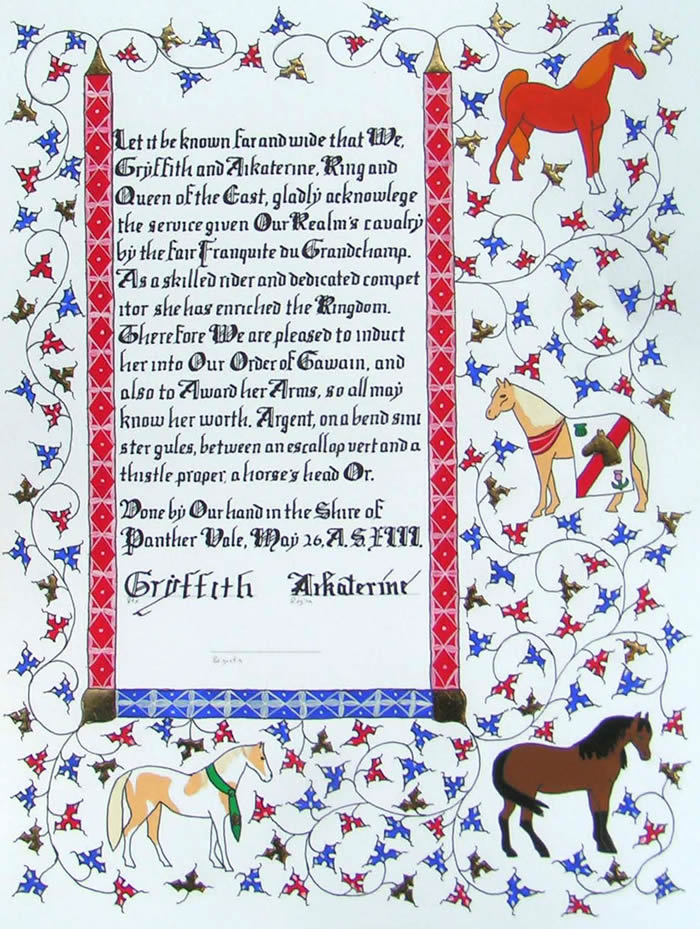 Let it be known far and wide that We,
Gryffith and Aikaterine, King and
Queen of the East, gladly acknowlege
the service given Our Realm's cavalry
by the fair Franquite du Grandchamp.
As a skilled rider and dedicated compet
itor she has enriched the Kingdom.
Therefore We are pleased to induct
her into Our Order of Gawain, and
also to Award her Arms, so all may
know her worth. Argent, on a bend sini
ster gules, between an escallop vert and a
thistle proper, a horse's head Or.
Done by Our hand in the Shire of
Panther Vale, May 26, A.S.XLIII.
Gryffith Aikaterine
Rex Regina